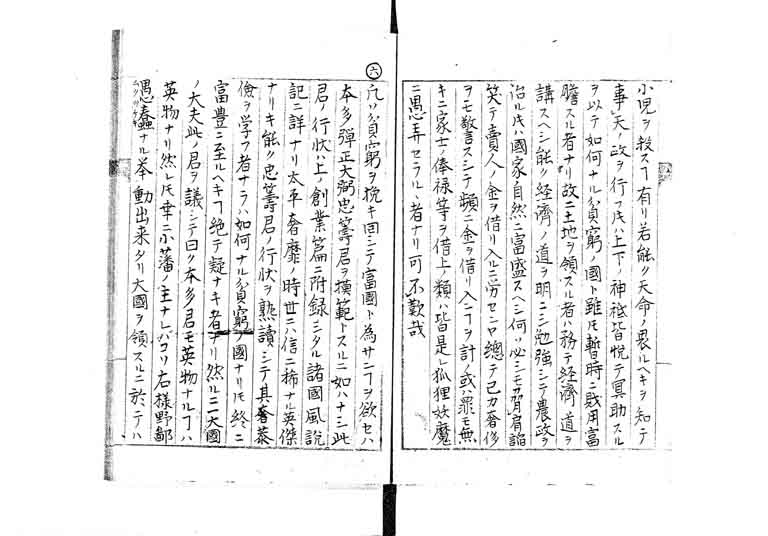 小児ヲ殺スヿ有リ若能ク天命ノ畏ルヘキヲ知テ
事天ノ政ヲ行フ𪜈ハ上下ノ神祇皆悦テ冥助スル
ヲ以テ如何ナル貧窮ノ國ト雖𪜈暫時ニ賎用富
贍スル者ナリ故ニ土地ヲ領スル者ハ務テ経濟ノ道ヲ
講スヘシ能ク経濟ノ道ヲ明ニシ勉強シテ農政ヲ
治ル𪜈ハ國家自然ニ富盛スヘシ何ソ必シモ脅肩諂
笑テ賣人ノ金ヲ借リ入ルニ労センヤ總テ己カ奢侈
ヲモ敬言スシテ頻ニ金ヲ借リ入ンヿヲ計ノ或ハ罪モ無
キニ家士ノ俸禄等ヲ借上ノ類ハ皆是レ狐狸妖魔
ニ愚弄セラルヽ者ナリ可不歎哉
六
凢ソ貧窮ヲ挽キ回シテ富國ト為サンヿヲ欲セハ
本多彈正大弼忠籌君ヲ摸範トスルニ如ハナシ此
君ノ行状ハ上ノ創業篇ニ附録シタル諸國風説
記ニ詳ナリ太平奢靡ノ時世ニハ信ニ稀ナル英傑
ナリキ能ク忠籌君ノ行状ヲ熟讀シテ其恭
儉ヲ学フ者ナラハ如何ナル貧窮ノ國ナリ𪜈終ニ
富豊ニ至ルヘキヿ絶テ疑ナキ者ナリ然ルニ大國
ノ大夫此ノ君ヲ議シテ曰ク本多君モ英物ナルヿハ
英物ナリ然レ𪜈幸ニ小藩ノ主ナレバコソ右様野鄙
愚蠢ナル挙動出来タリ大國ヲ領スルニ於テハ